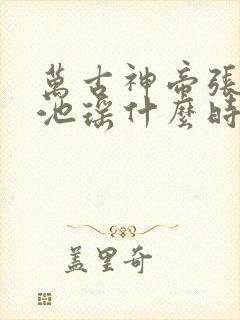 萬古神帝張
池瑤什麼時
蓋里奇